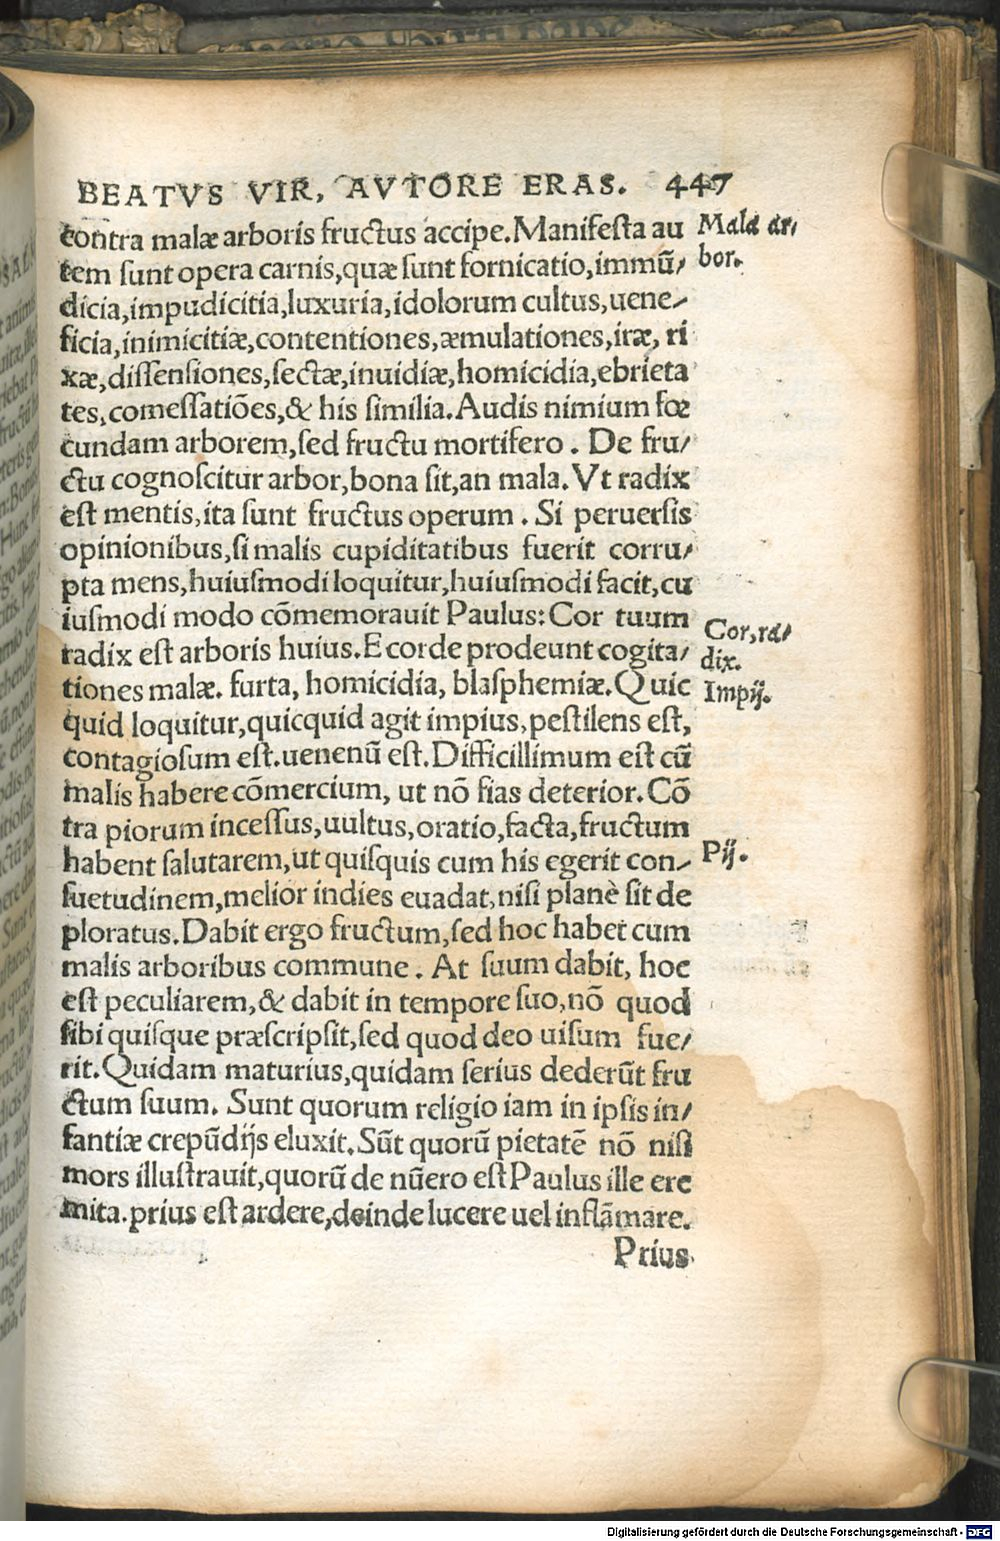 BEATVS VIR, AVTORE ERAS. 447
contra malæ arboris fructus accipe. Manifesta au
Mala ar/
tem sunt opera carnis, quæ sunt fornicatio, immũ/
bor.
dicia, impudicitia, luxuria, idolorum cultus, uene/
ficia, inimicitiæ, contentiones, æmulationes, iræ, ri
xæ, dissensiones, sectæ, inuidiæ, homicidia, ebrieta
tes, comessatiões, & his similia. Audis nimium fœ
cundam arborem, sed fructu mortifero. De fru/
ctu cognoscitur arbor, bona sit, an mala. Vt radix
est mentis, ita sunt fructus operum. Si peruersis
opinionibus, si malis cupiditatibus fuerit corru/
pta mens, huiusmodi loquitur, huiusmodi facit, cu
iusmodi modo cõmemorauit Paulus: Cor tuum
Cor, ra/
radix est arboris huius. E corde prodeunt cogita/
dix.
tiones malæ. furta, homicidia, blasphemiæ. Quic
Impij.
quid loquitur, quicquid agit impius, pestilens est,
contagiosum est. uenenũ est. Difficillimum est cũ
malis habere cõmercium, ut nõ fias deterior. Cõ
tra piorum incessus, uultus, oratio, facta, fructum
habent salutarem, ut quisquis cum his egerit con/
Pij.
suetudinem, melior indies euadat, nisi planè sit de
ploratus. Dabit ergo fructum, sed hoc habet cum
malis arboribus commune. At suum dabit, hoc
est peculiarem, & dabit in tempore suo, nõ quod
sibi quisque præscripsit, sed quod deo uisum fue/
rit. Quidam maturius, quidam serius dederũt fru
ctum suum. Sunt quorum religio iam in ipsis in/
fantiæ crepũdijs eluxit. Sũt quorũ pietatẽ nõ nisi
mors illustrauit, quorũ de nũero est Paulus ille ere
mita. prius est ardere, deinde lucere uel inflãmare.
Prius
Digitalisierung gefördert durch die Deutsche Forschungsgemeinschaft - DFG